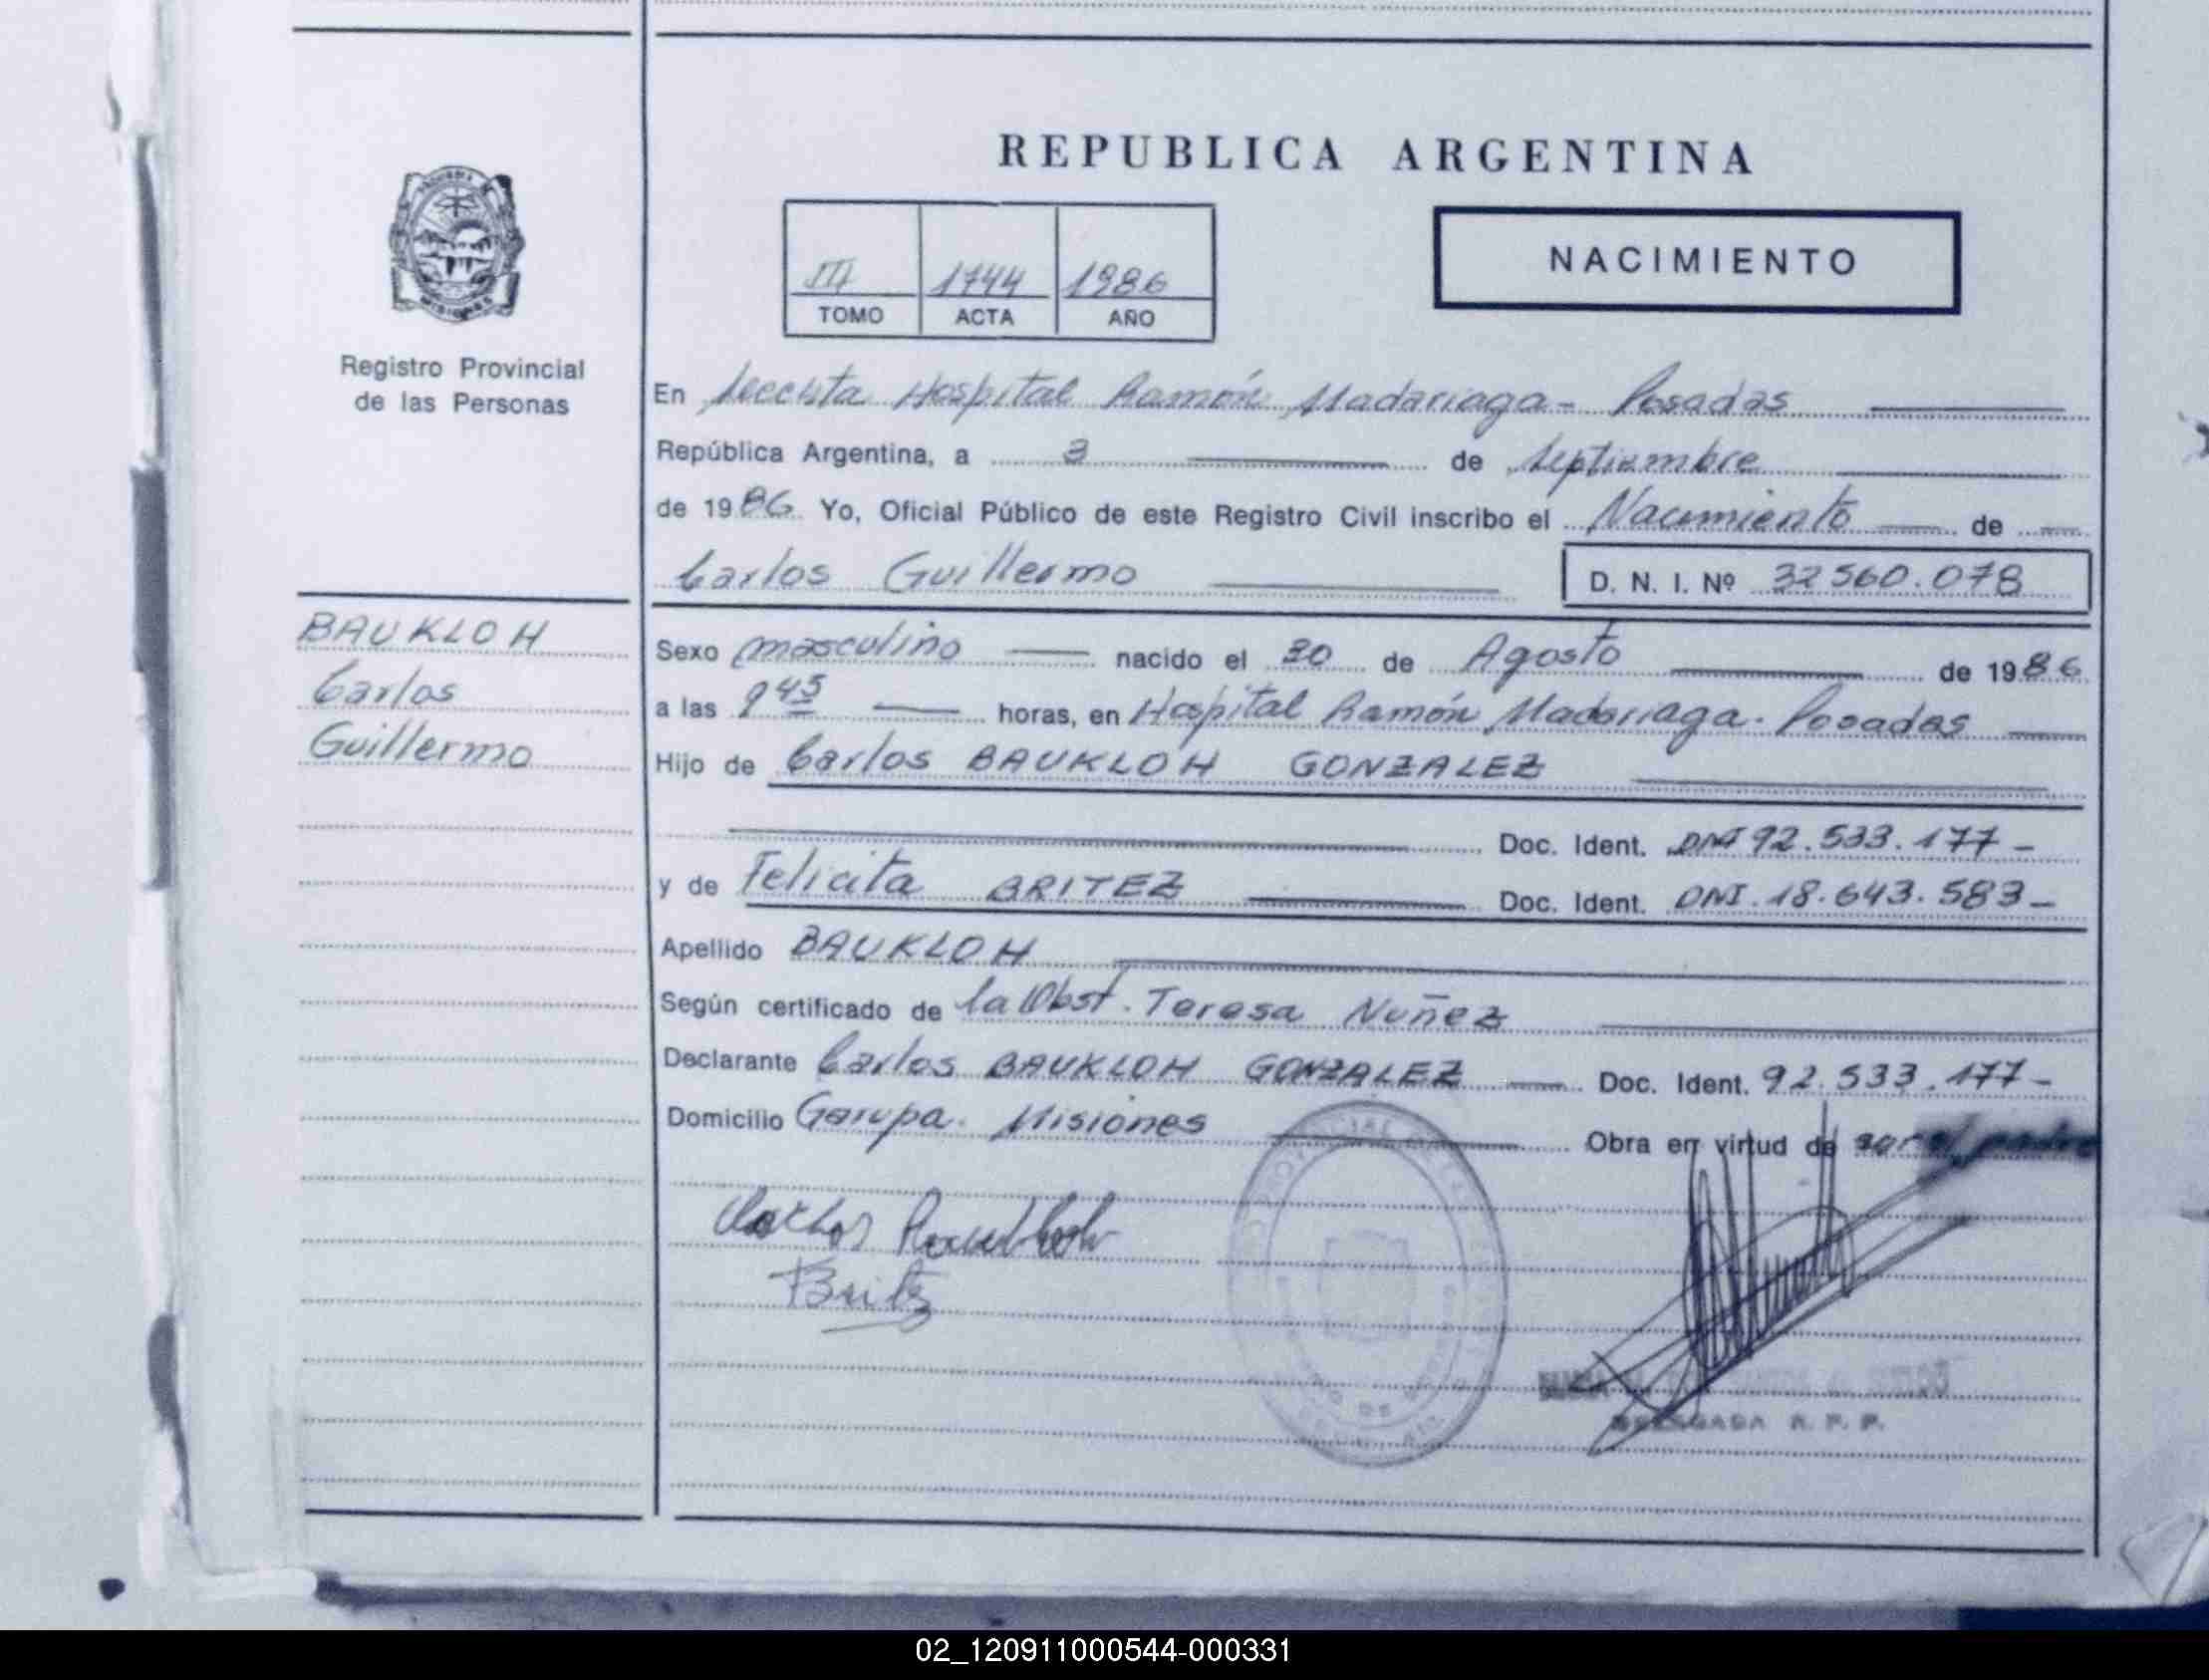 REPUBLICA ARGENTINA
NACIMIENTO
III 1744 1986
TOMO ACTA AÑO
Registro Provincial
de las Personas
En Hospital Ramón Madariaga - Posadas
República Argentina, a 3 de Septiembre
de 1986 Yo, Oficial Público de este Registro Civil inscribo el Nacimiento de
Carlos Guillermo D. N. I. Nº 32560.078
BAUKLOH
Carlos
Guillermo
Sexo masculino nacido el 30 de Agosto de 1986
a las 9 45 horas, en Hospital Ramón Madariaga. Posadas
Hijo de Carlos BAUKLOH GONZALEZ
Doc. Ident. DNI 92.533.177-
y de Felicita BRITEZ Doc. Ident. DNI. 18.643.583-
Apellido BAUKLOH
Según certificado de la Obst. Teresa Nuñez
Declarante Carlos BAUKLOH GONZALEZ Doc. Ident. 92.533.177-
Domicilio Garupa. Misiones Obra en virtud de ser el padre
Carlos Baukloh
Britez
DELEGADA R. P. P.
02_120911000544-000331